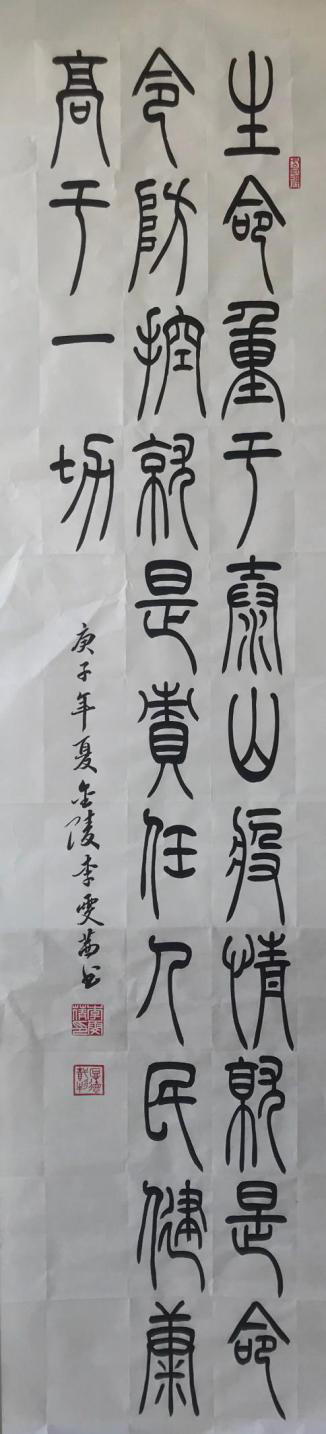 生命重于泰山疫情就是命
令防控就是責任人民健康
高于一切
庚子年夏金陵李雯茜书
厚德載物